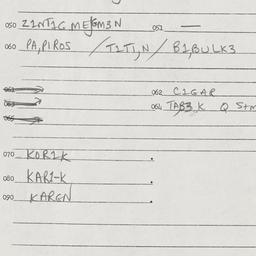 050 Z1NT1G MEKGM3N 051 —
060 PA,PIROS / T1T1,N / B1,BULK3
061
062 C1GAR
063
064 TAB3K Q
065
070 KOR1K .
080 KAR1-K .
090 KAREN .